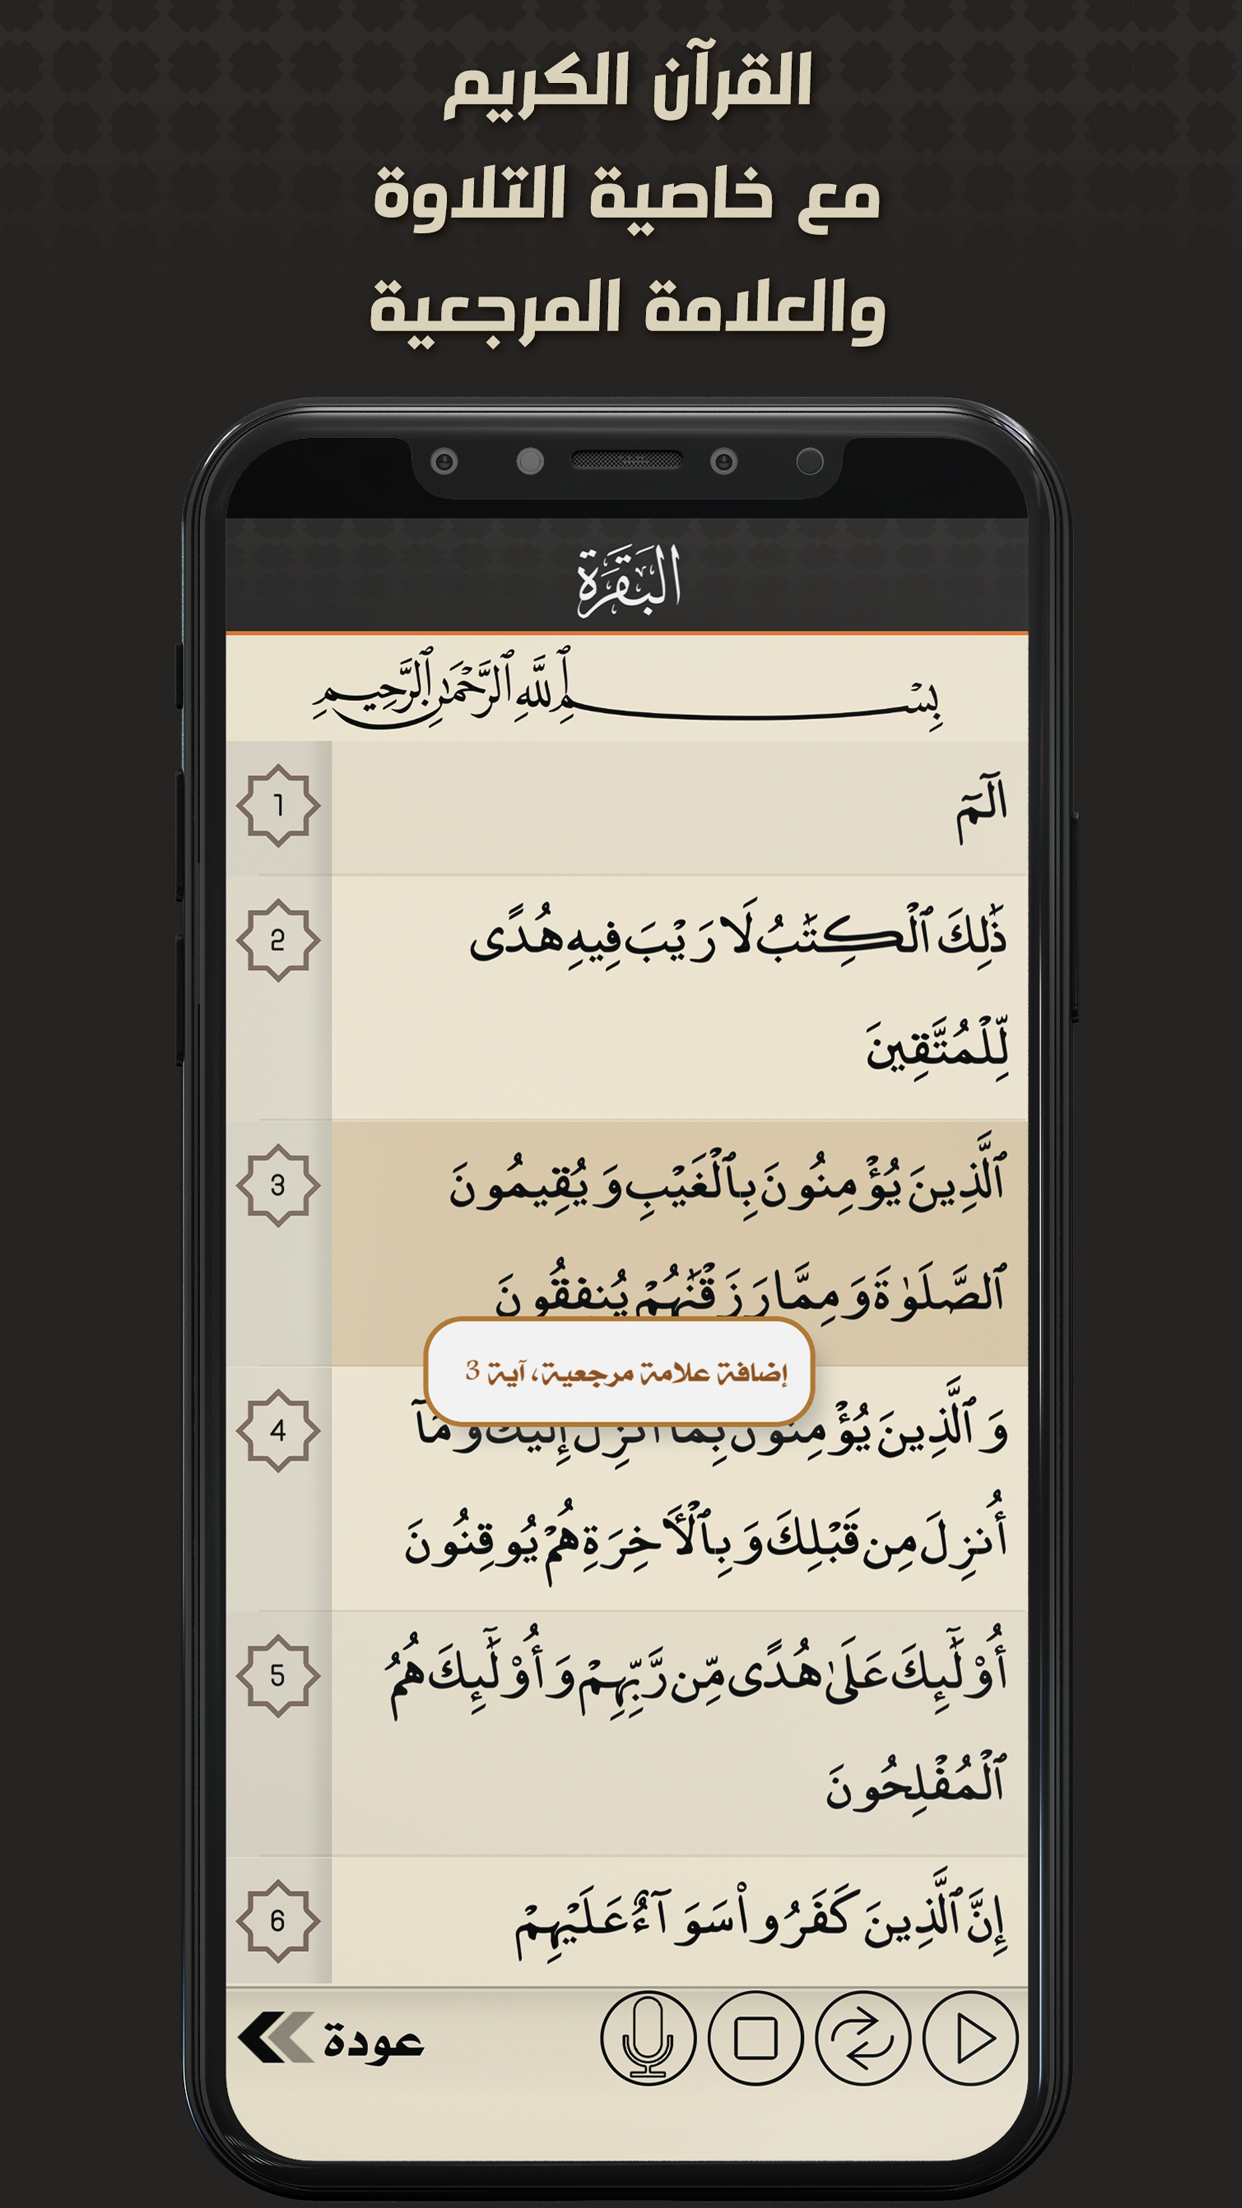 القرآن الكريم
مع خاصية التلاوة
والعلامة المرجعية
البَقَرَة
بِسْمِ ٱللَّهِ ٱلرَّحْمَٰنِ ٱلرَّحِيمِ
1
الٓمٓ
2
ذَٰلِكَ ٱلْكِتَٰبُ لَا رَيْبَ فِيهِ هُدًى
لِّلْمُتَّقِينَ
3
ٱلَّذِينَ يُؤْمِنُونَ بِٱلْغَيْبِ وَيُقِيمُونَ
ٱلصَّلَوٰةَ وَمِمَّا رَزَقْنَٰهُمْ يُنفِقُونَ
إضافة علامة مرجعية، آية 3
4
وَٱلَّذِينَ يُؤْمِنُونَ بِمَآ أُنزِلَ إِلَيْكَ وَمَآ
أُنزِلَ مِن قَبْلِكَ وَبِٱلْأَخِرَةِ هُمْ يُوقِنُونَ
5
أُوْلَٰٓئِكَ عَلَىٰ هُدًى مِّن رَّبِّهِمْ وَأُوْلَٰٓئِكَ هُمُ
ٱلْمُفْلِحُونَ
6
إِنَّ ٱلَّذِينَ كَفَرُوا۟ سَوَآءٌ عَلَيْهِمْ
عودة